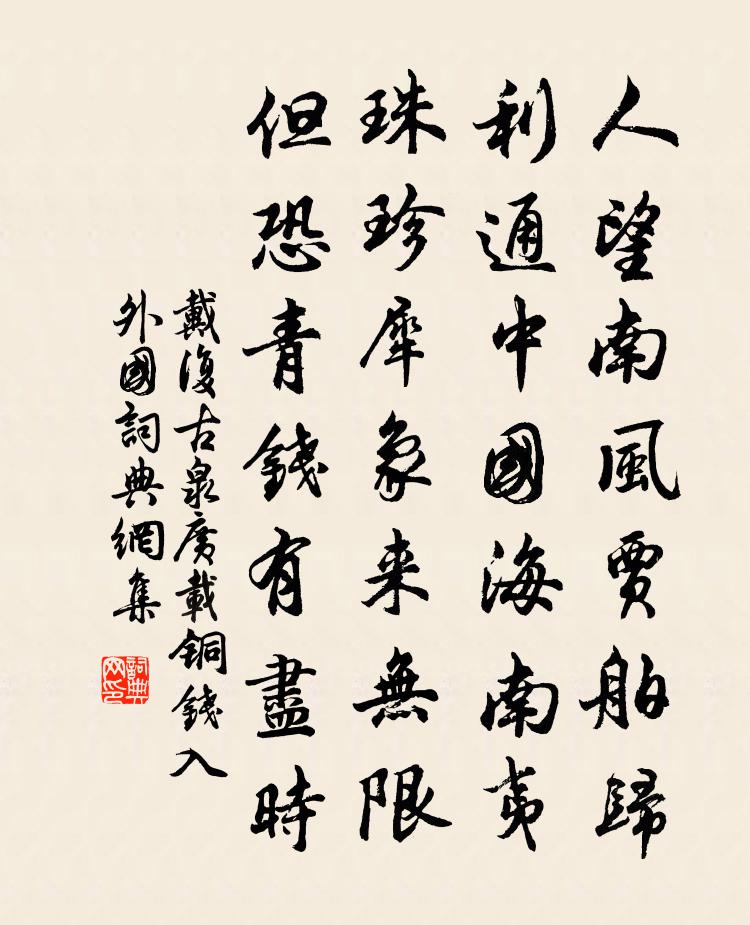 人望南風賈舶歸
利通中國海南夷
珠珍犀象来無限
但恐青錢有盡時
戴復古泉廣載銅錢入
外國詞典網集
詞典网印